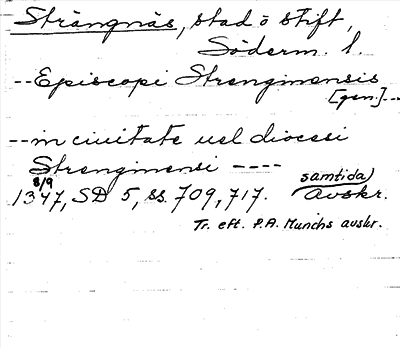 Strängnäs, stad o stift,
Söderm. l.
--Episcopi Strenginensis
[gen.]--
--in ciuitate uel diocesi
Strenginensi ----
8/9 samtida)
1347, SD 5, ss. 709, 717. Avskr.
Tr. eft. P.A. Munchs avskr.